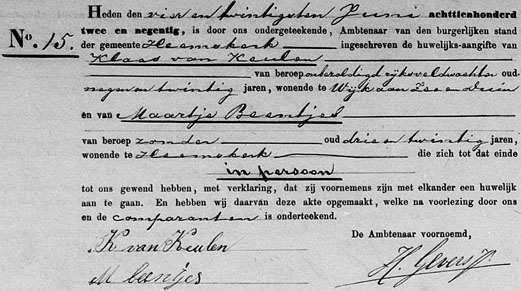 Heden den vier en twintigsten Juni achttienhonderd
No. 15. twee en negentig, is door ons ondergeteekende, Ambtenaar van den burgerlijken stand
der gemeente Heemskerk ingeschreven de huwelijks-aangifte van
Klaas van Keulen
van beroep onbezoldigd rijksveldwachter oud
negen en twintig jaren, wonende te Wijk aan Zee en Duin
en van Maartje Beentjes
van beroep zonder oud drie en twintig jaren,
wonende te Heemskerk die zich tot dat einde
in persoon
tot ons gewend hebben, met verklaring, dat zij voornemens zijn met elkander een huwelijk
aan te gaan. En hebben wij daarvan deze akte opgemaakt, welke na voorlezing door ons
en de comparanten is onderteekend.
De Ambtenaar voornoemd,
K van Keulen
M Beentjes
H. Gevers